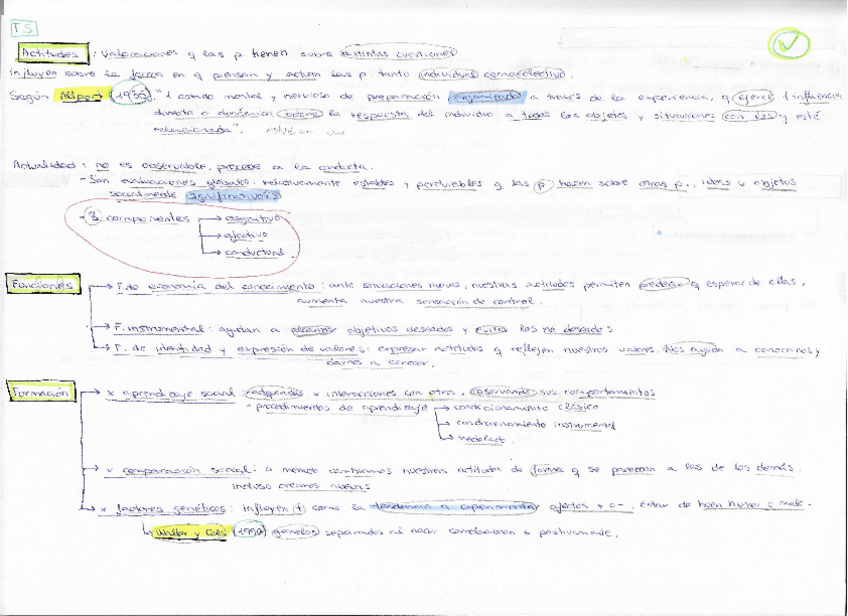 T.5
Actitudes: valoraciones q las p. tienen sobre distintas cuestiones
Influyen sobre la forma en q piensan y actúan las p. tanto individual como colectivo.
Según Allport (1935). "1 estado mental y nervioso de preparación organizado a través de la experiencia, q ejerce 1 influencia
directa o dinámica sobre la respuesta del individuo a todos los objetos y situaciones con los q está
relacionado".
Actualidad: no es observable, precede a la conducta.
- Son evaluaciones globales, relativamente estables y perdurables q las p hacen sobre otras p., ideas u objetos
socialmente significativos
- 3 componentes → cognitivo
→ afectivo
→ conductual
Funciones → F. de economía del conocimiento: ante situaciones nuevas, nuestras actitudes permiten predecir q esperar de ellas,
aumenta nuestra sensación de control.
→ F. instrumental: ayudan a alcanzar objetivos deseados y evitar los no deseados
→ F. de identidad y expresión de valores: expresar actitudes q reflejen nuestros valores. Nos ayuda a conocernos y
darnos a conocer.
Formación → x aprendizaje social: adquiridas x interacciones con otros, observando sus comportamientos
- procedimientos de aprendizaje → condicionamiento clásico
→ condicionamiento instrumental
→ modelado.
→ x comparación social: a menudo cambiamos nuestras actitudes de forma q se parezcan a las de los demás.
incluso creamos nuevas
→ x factores genéticos: influyen (+) como la tendencia a experimentar afectos + o -, estar de buen humor o malo.
↳ Waller y Cols (1990) gemelos separados al nacer correlacionan + positivamente.